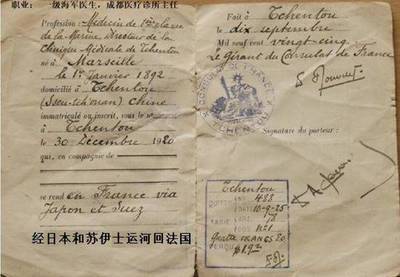 职业：一级海军医生，成都医疗诊所主任
Profession: Médecin de 1ère classe
de la Marine, Directeur de la
Clinique Médicale de Tchentou
né à Marseille
le 1er janvier 1892
domicilié à Tchentou
(Sseu-tchouan) Chine
immatriculé ou inscrit, sous le
à Tchentou
le 30 Décembre 1920
qui, en compagnie de
se rend en France via
Japon et Suez
经日本和苏伊士运河回法国
Fait à Tchentou
le dix septembre
Mil neuf cent vingt-cinq
Le Gérant du Consulat de France
CONSULAT DE FRANCE
TCHENTOU
Signature du porteur :
Tchentou
488
10-9-25
TARIF
78
QUATRE FRANCS 80
PERÇU